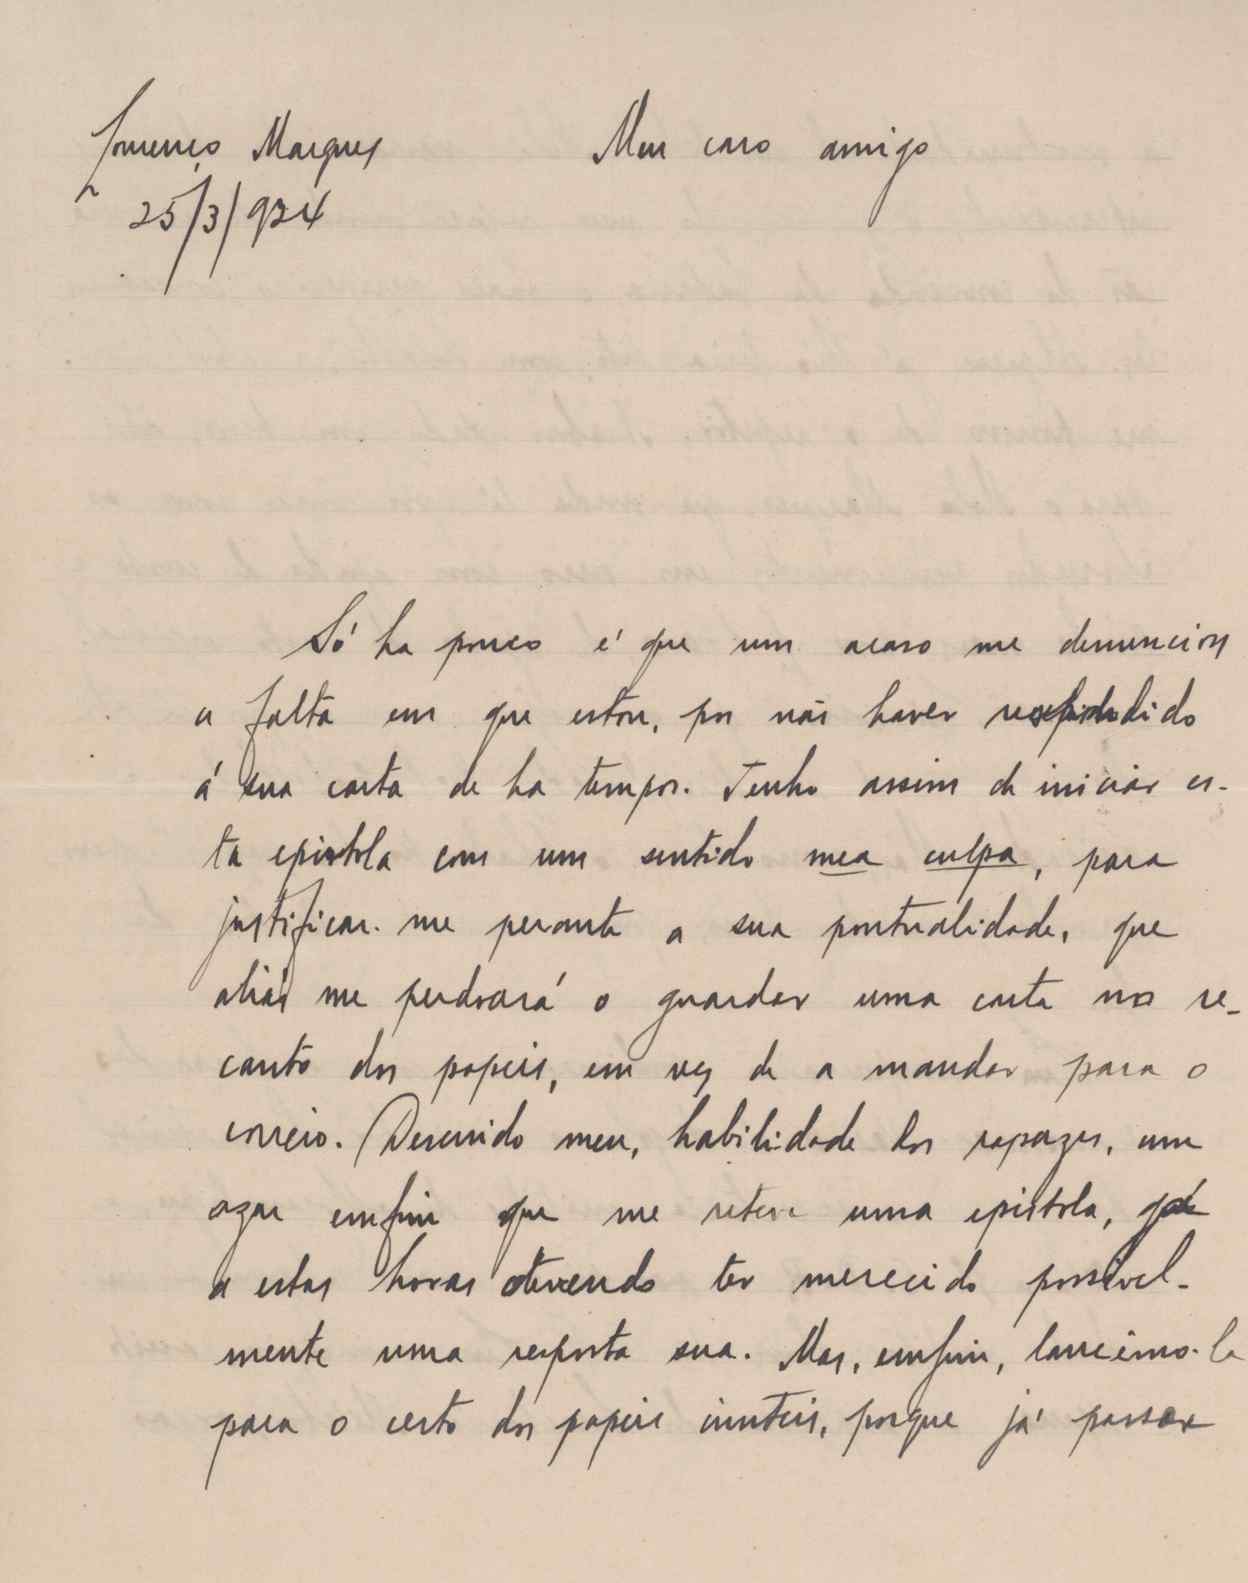 Lourenço Marques
25/3/924
Meu caro amigo
Só ha pouco é que um acaso me denunciou
a falta em que estou, por não haver respondido
á sua carta de ha tempos. Tenho assim de iniciar es-
ta epistola com um sentido mea culpa, para
justificar-me perante a sua pontualidade, que
aliás me perdoará o guardar uma carta no re-
canto dos papeis, em vez de a mandar para o
correio. Descuido meu, habilidade dos rapazes, um
azar emfim que me reteve uma epistola,
a estas horas devendo ter merecido possivel-
mente uma resposta sua. Mas, emfim, lancêmo-la
para o cesto dos papeis inuteis, porque já passou